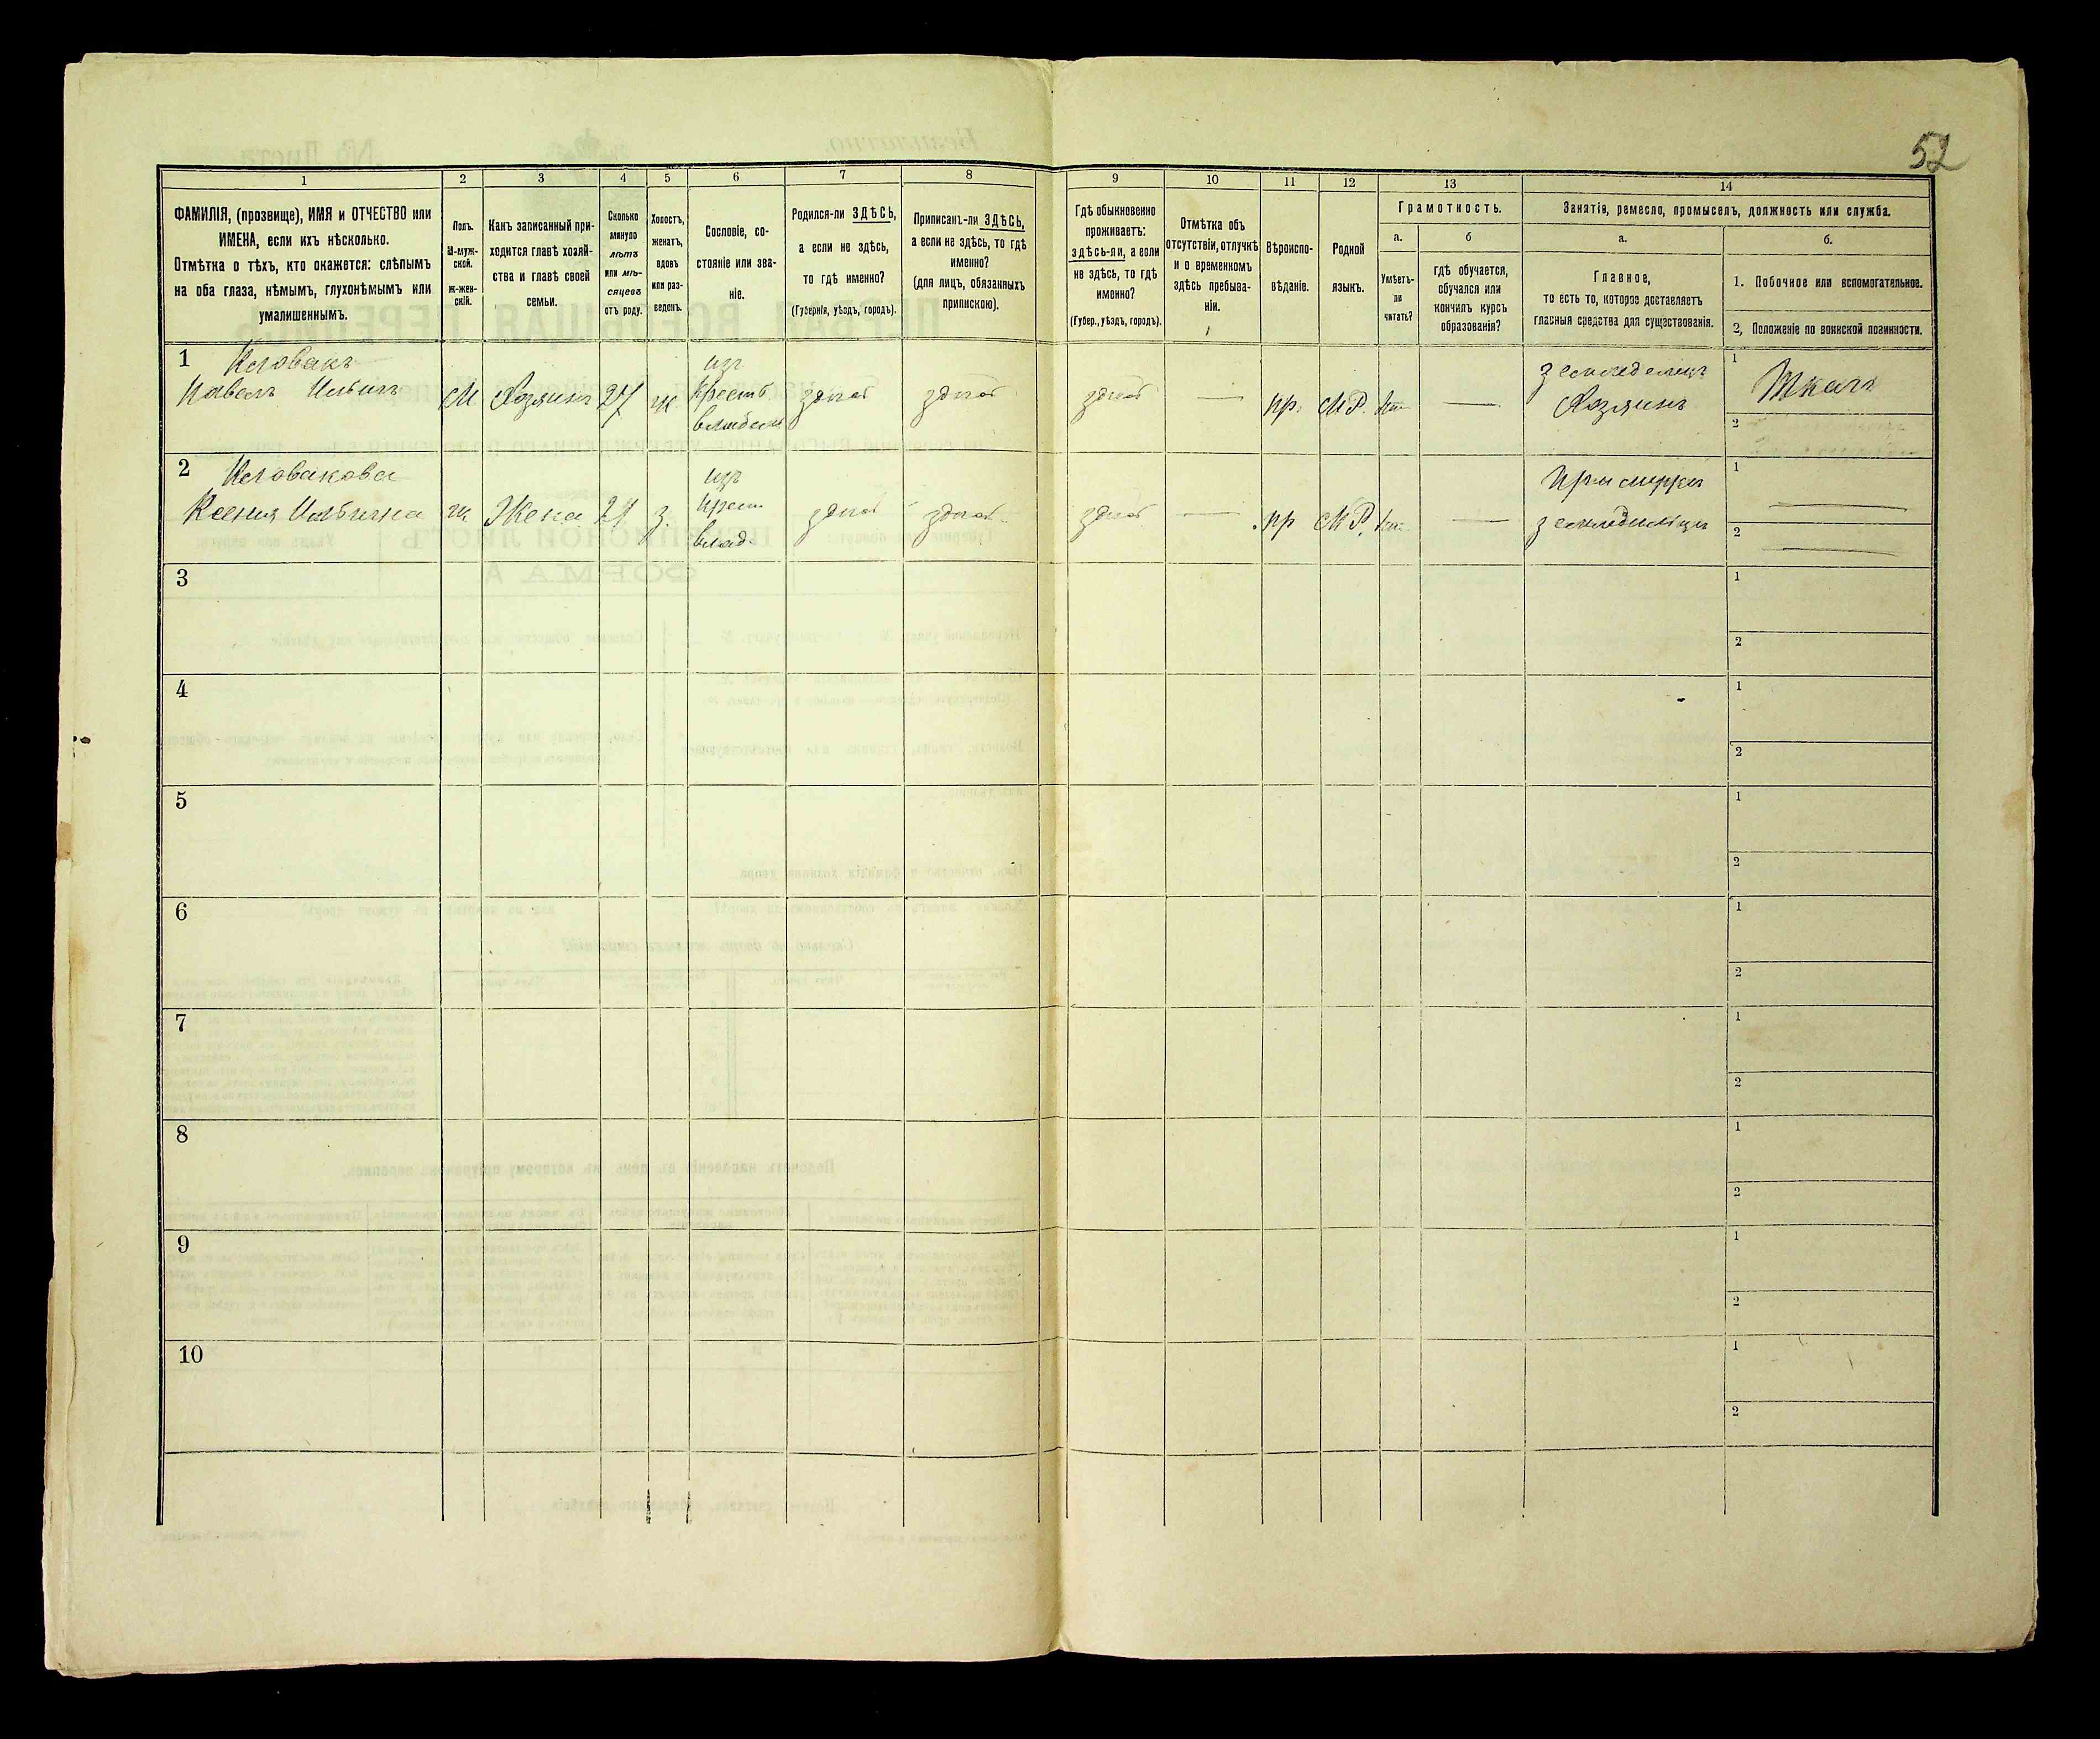 52
1
2
3
4
5
6
7
8
9
10
11
12
13
14
ФАМИЛІЯ, (прозвище), ИМЯ и ОТЧЕСТВО или
ИМЕНА, если ихъ нѣсколько.
Отмѣтка о тѣхъ, кто окажется: слѣпымъ
на оба глаза, нѣмымъ, глухонѣмымъ или
умалишеннымъ.
Полъ.
М-муж-
ской.
ж-жен-
скій.
Какъ записанный при-
ходится главѣ хозяй-
ства и главѣ своей
семьи.
Сколько
минуло
лѣтъ
или мѣ-
сяцевъ
отъ роду.
Холостъ,
женатъ,
вдовъ
или раз-
веденъ.
Сословіе, со-
стояніе или зва-
ніе.
Родился-ли ЗДѢСЬ,
а если не здѣсь,
то гдѣ именно?
(Губернія, уѣздъ, городъ).
Приписанъ-ли ЗДѢСЬ,
а если не здѣсь, то гдѣ
именно?
(для лицъ, обязанныхъ
припискою).
Гдѣ обыкновенно
проживаетъ:
здѣсь-ли, а если
не здѣсь, то гдѣ
именно?
(Губер., уѣздъ, городъ).
Отмѣтка объ
отсутствіи, отлучкѣ
и о временномъ
здѣсь пребыва-
ніи.
Вѣроиспо-
вѣданіе.
Родной
языкъ.
Грамотность.
а.
Умѣетъ-
ли
читать?
б
гдѣ обучается,
обучался или
кончилъ курсъ
образованія?
Занятія, ремесло, промыселъ, должность или служба.
а.
Главное,
то есть то, которое доставляетъ
главныя средства для существованія.
б.
1. Побочное или вспомогательное.
2, Положеніе по воинской повинности.
1
Павелъ Ильинъ
М Хозяинъ 27 ж
изъ
Крест
здѣсь здѣсь здѣсь — пр. М.Р. —
Хозяинъ
1
Ткачъ
2
2
Ксения Ильична
ж Жена
з.
изъ
Крест
влад.
здѣсь здѣсь здѣсь — пр М.Р. —
При мужѣ
1
2
3
1
2
4
1
2
5
1
2
6
1
2
7
1
2
8
1
2
9
1
2
10
1
2